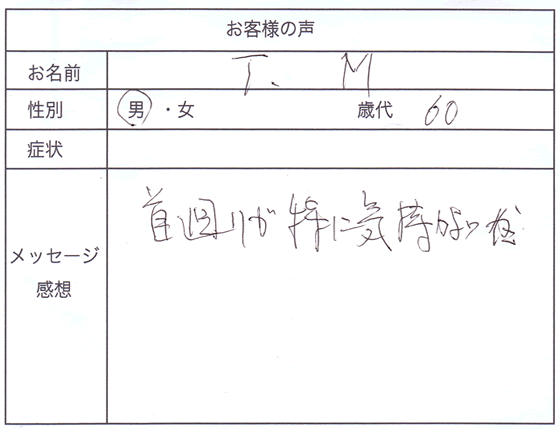 お客様の声
お名前 T. M
性別 男・女 歳代 60
症状
メッセージ
感想
首回りが特に気持がよい